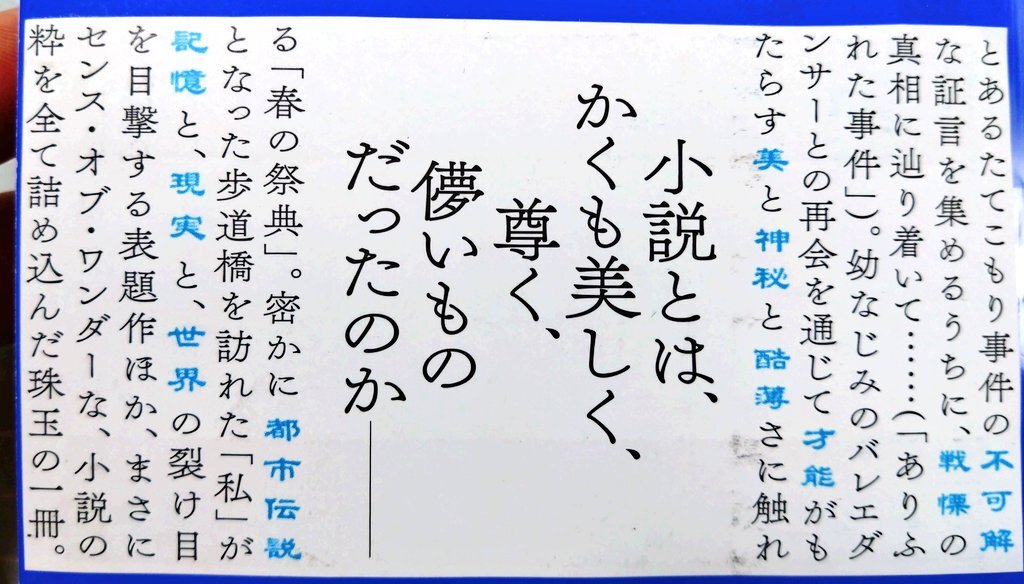 とあるたてこもり事件の不可解
な証言を集めるうちに、戦慄の
真相に辿り着いて……(「ありふ
れた事件」)。幼なじみのバレエダ
ンサーとの再会を通じて才能がも
たらす美と神秘と酷薄さに触れ
小説とは、
かくも美しく、
尊く、
儚いもの
だったのか――
る「春の祭典」。密かに都市伝説
となった歩道橋を訪れた「私」が
記憶と、現実と、世界の裂け目
を目撃する表題作ほか、まさに
センス・オブ・ワンダーな、小説の
粋を全て詰め込んだ珠玉の一冊。